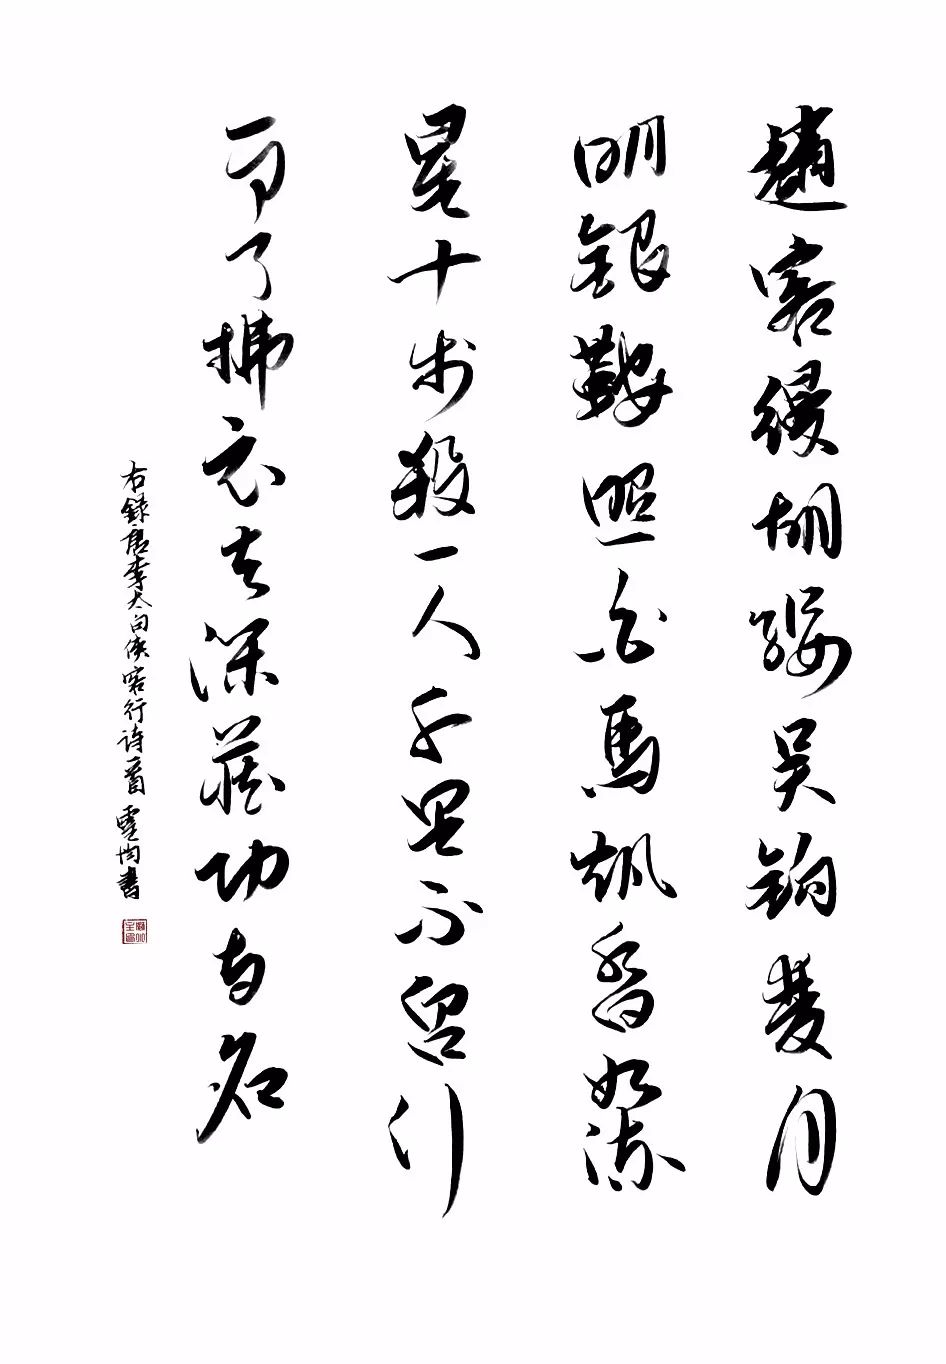 趙客縵胡纓吳鉤月
明銀鞍照白馬颯沓如流
星十步殺一人千里不留行
事了拂衣去深藏功与名
右錄唐李太白俠客行诗一首 靈均書